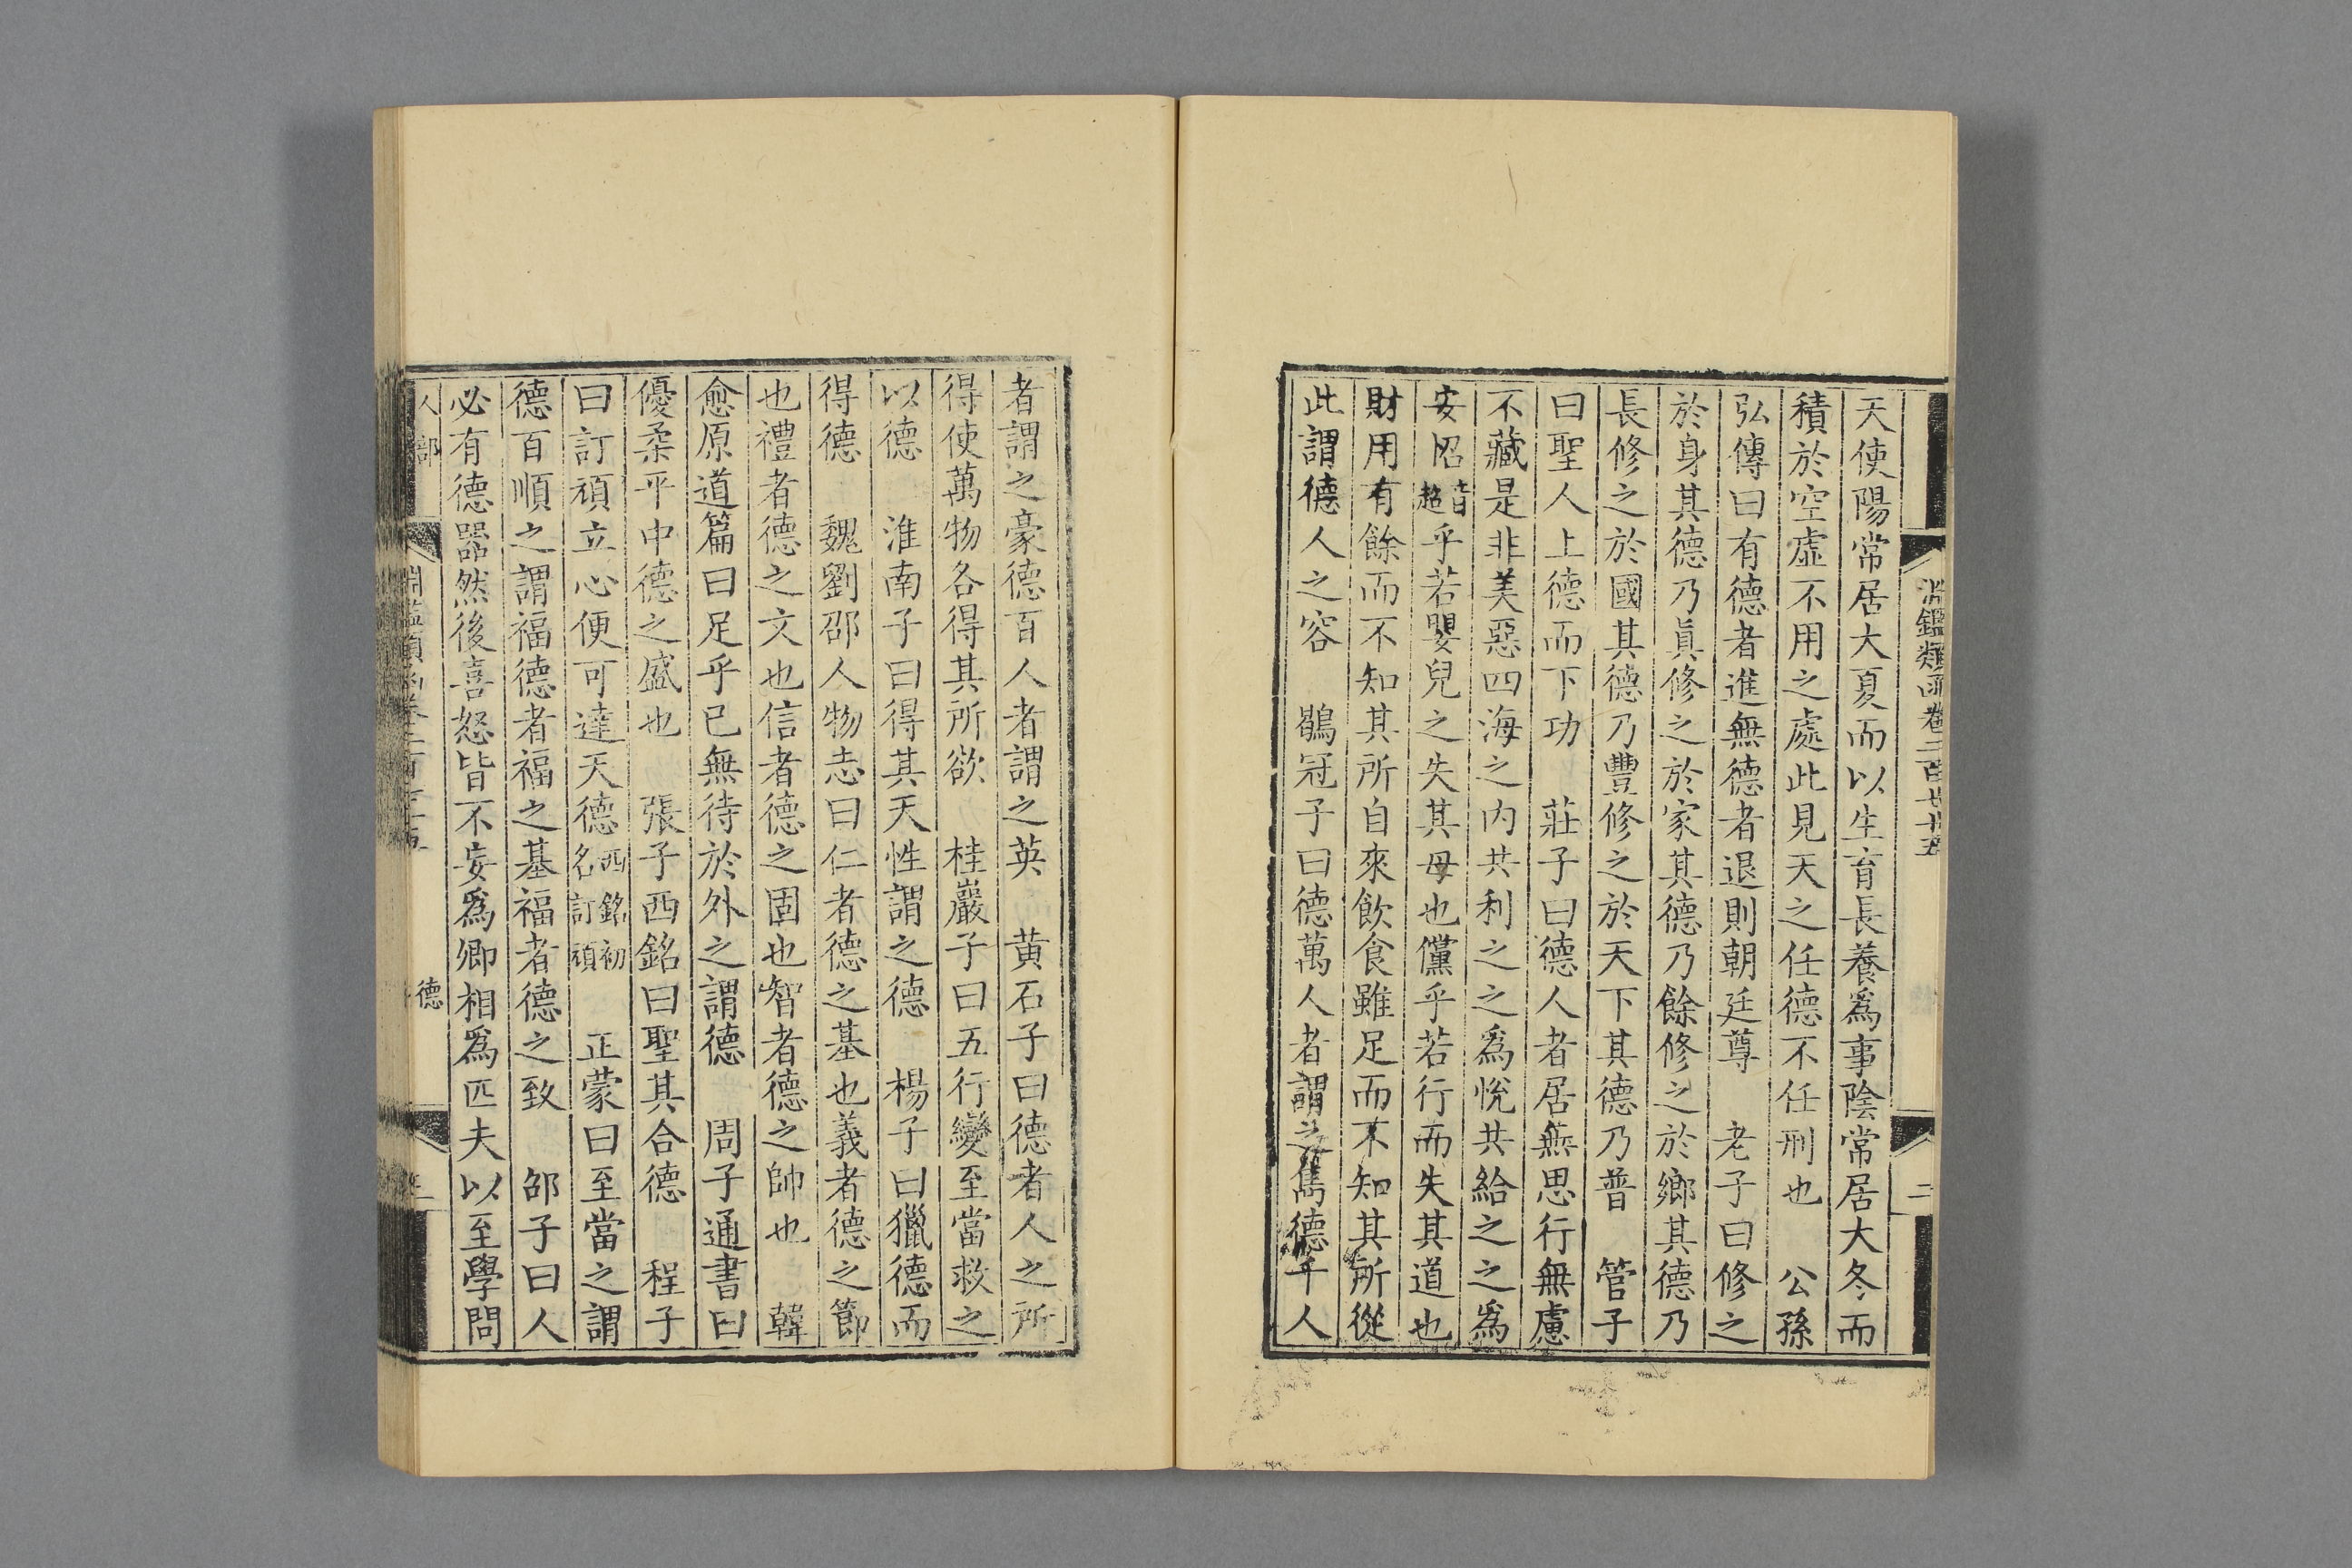 淵鑑類函卷二百
二
天使陽常居大夏而以生育長養爲事陰常居大冬而
積於空虛不用之處此見天之任德不任刑也　公孫
弘傳曰有德者進無德者退則朝廷尊　老子曰修之
於身其德乃眞修之於家其德乃餘修之於鄉其德乃
長修之於國其德乃豐修之於天下其德乃普　管子
曰聖人上德而下功　莊子曰德人者居無思行無慮
不藏是非美惡四海之内共利之之爲悅共給之之爲
安怊音超乎若嬰兒之失其母也儻乎若行而失其道也
財用有餘而不知其所自來飲食雖足而不知其所從
此謂德人之容　鶡冠子曰德萬人者謂之雋德千人
者謂之豪德百人者謂之英　黄石子曰德者人之所
得使萬物各得其所欲　桂巖子曰五行變至當救之
以德　淮南子曰得其天性謂之德　楊子曰獵德而
得德　魏劉邵人物志曰仁者德之基也義者德之節
也禮者德之文也信者德之固也智者德之帥也　韓
愈原道篇曰足乎已無待於外之謂德　周子通書曰
優柔平中德之盛也　張子西銘曰聖其合德　程子
曰訂頑立心便可達天德西銘初名訂頑　正蒙曰至當之謂
德百順之謂福德者福之基福者德之致　邵子曰人
必有德器然後喜怒皆不妄爲卿相爲匹夫以至學問
人部
淵鑑類函卷二百
德